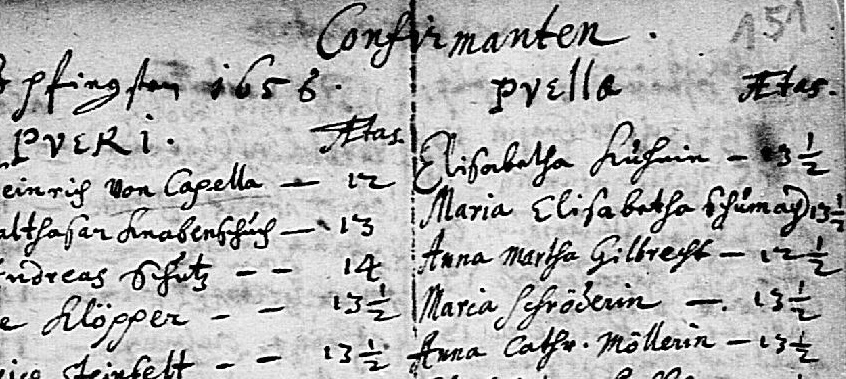 Confirmanten.
151
pfingsten 1656.
PVERI. Ætas.
einrich von Capella — 12
althasar Knabenschuch — 13
ndreas Schütz - - 14
e Klöpper - - 13 1/2
steinfelt - - 13 1/2
pvellæ Ætas.
Elisabetha — 13 1/2
Maria Elisabetha Schumach 13 1/2
Anna Martha Gilbrecht — 12 1/2
Maria Schröderin — 13 1/2
Anna Cathr. Möllerin — 13 1/2